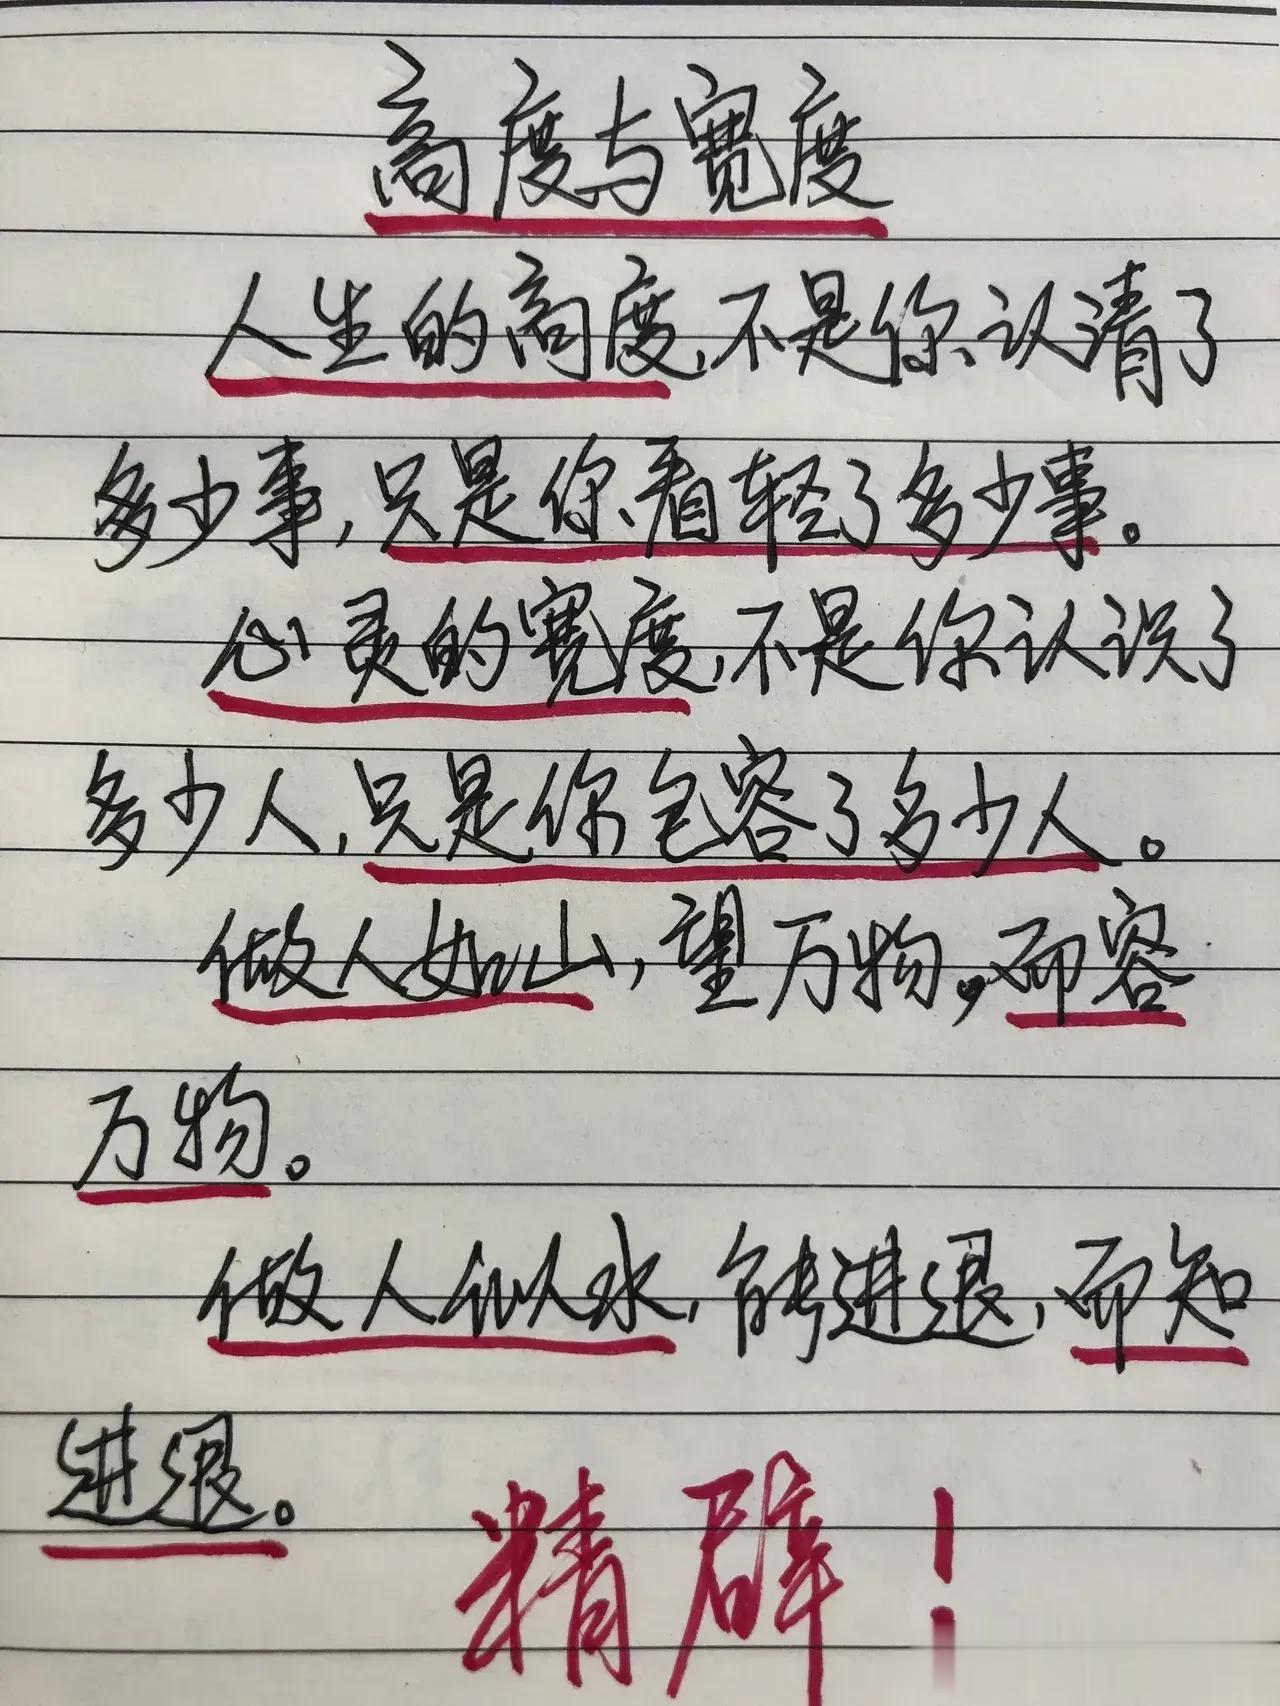 高度与宽度
人生的高度,不是你认清了
多少事,只是你看轻了多少事。
心灵的宽度,不是你认识了
多少人,只是你包容了多少人。
做人如山,望万物,而容
万物。
做人似水,能进退,而知
进退。
精辟!